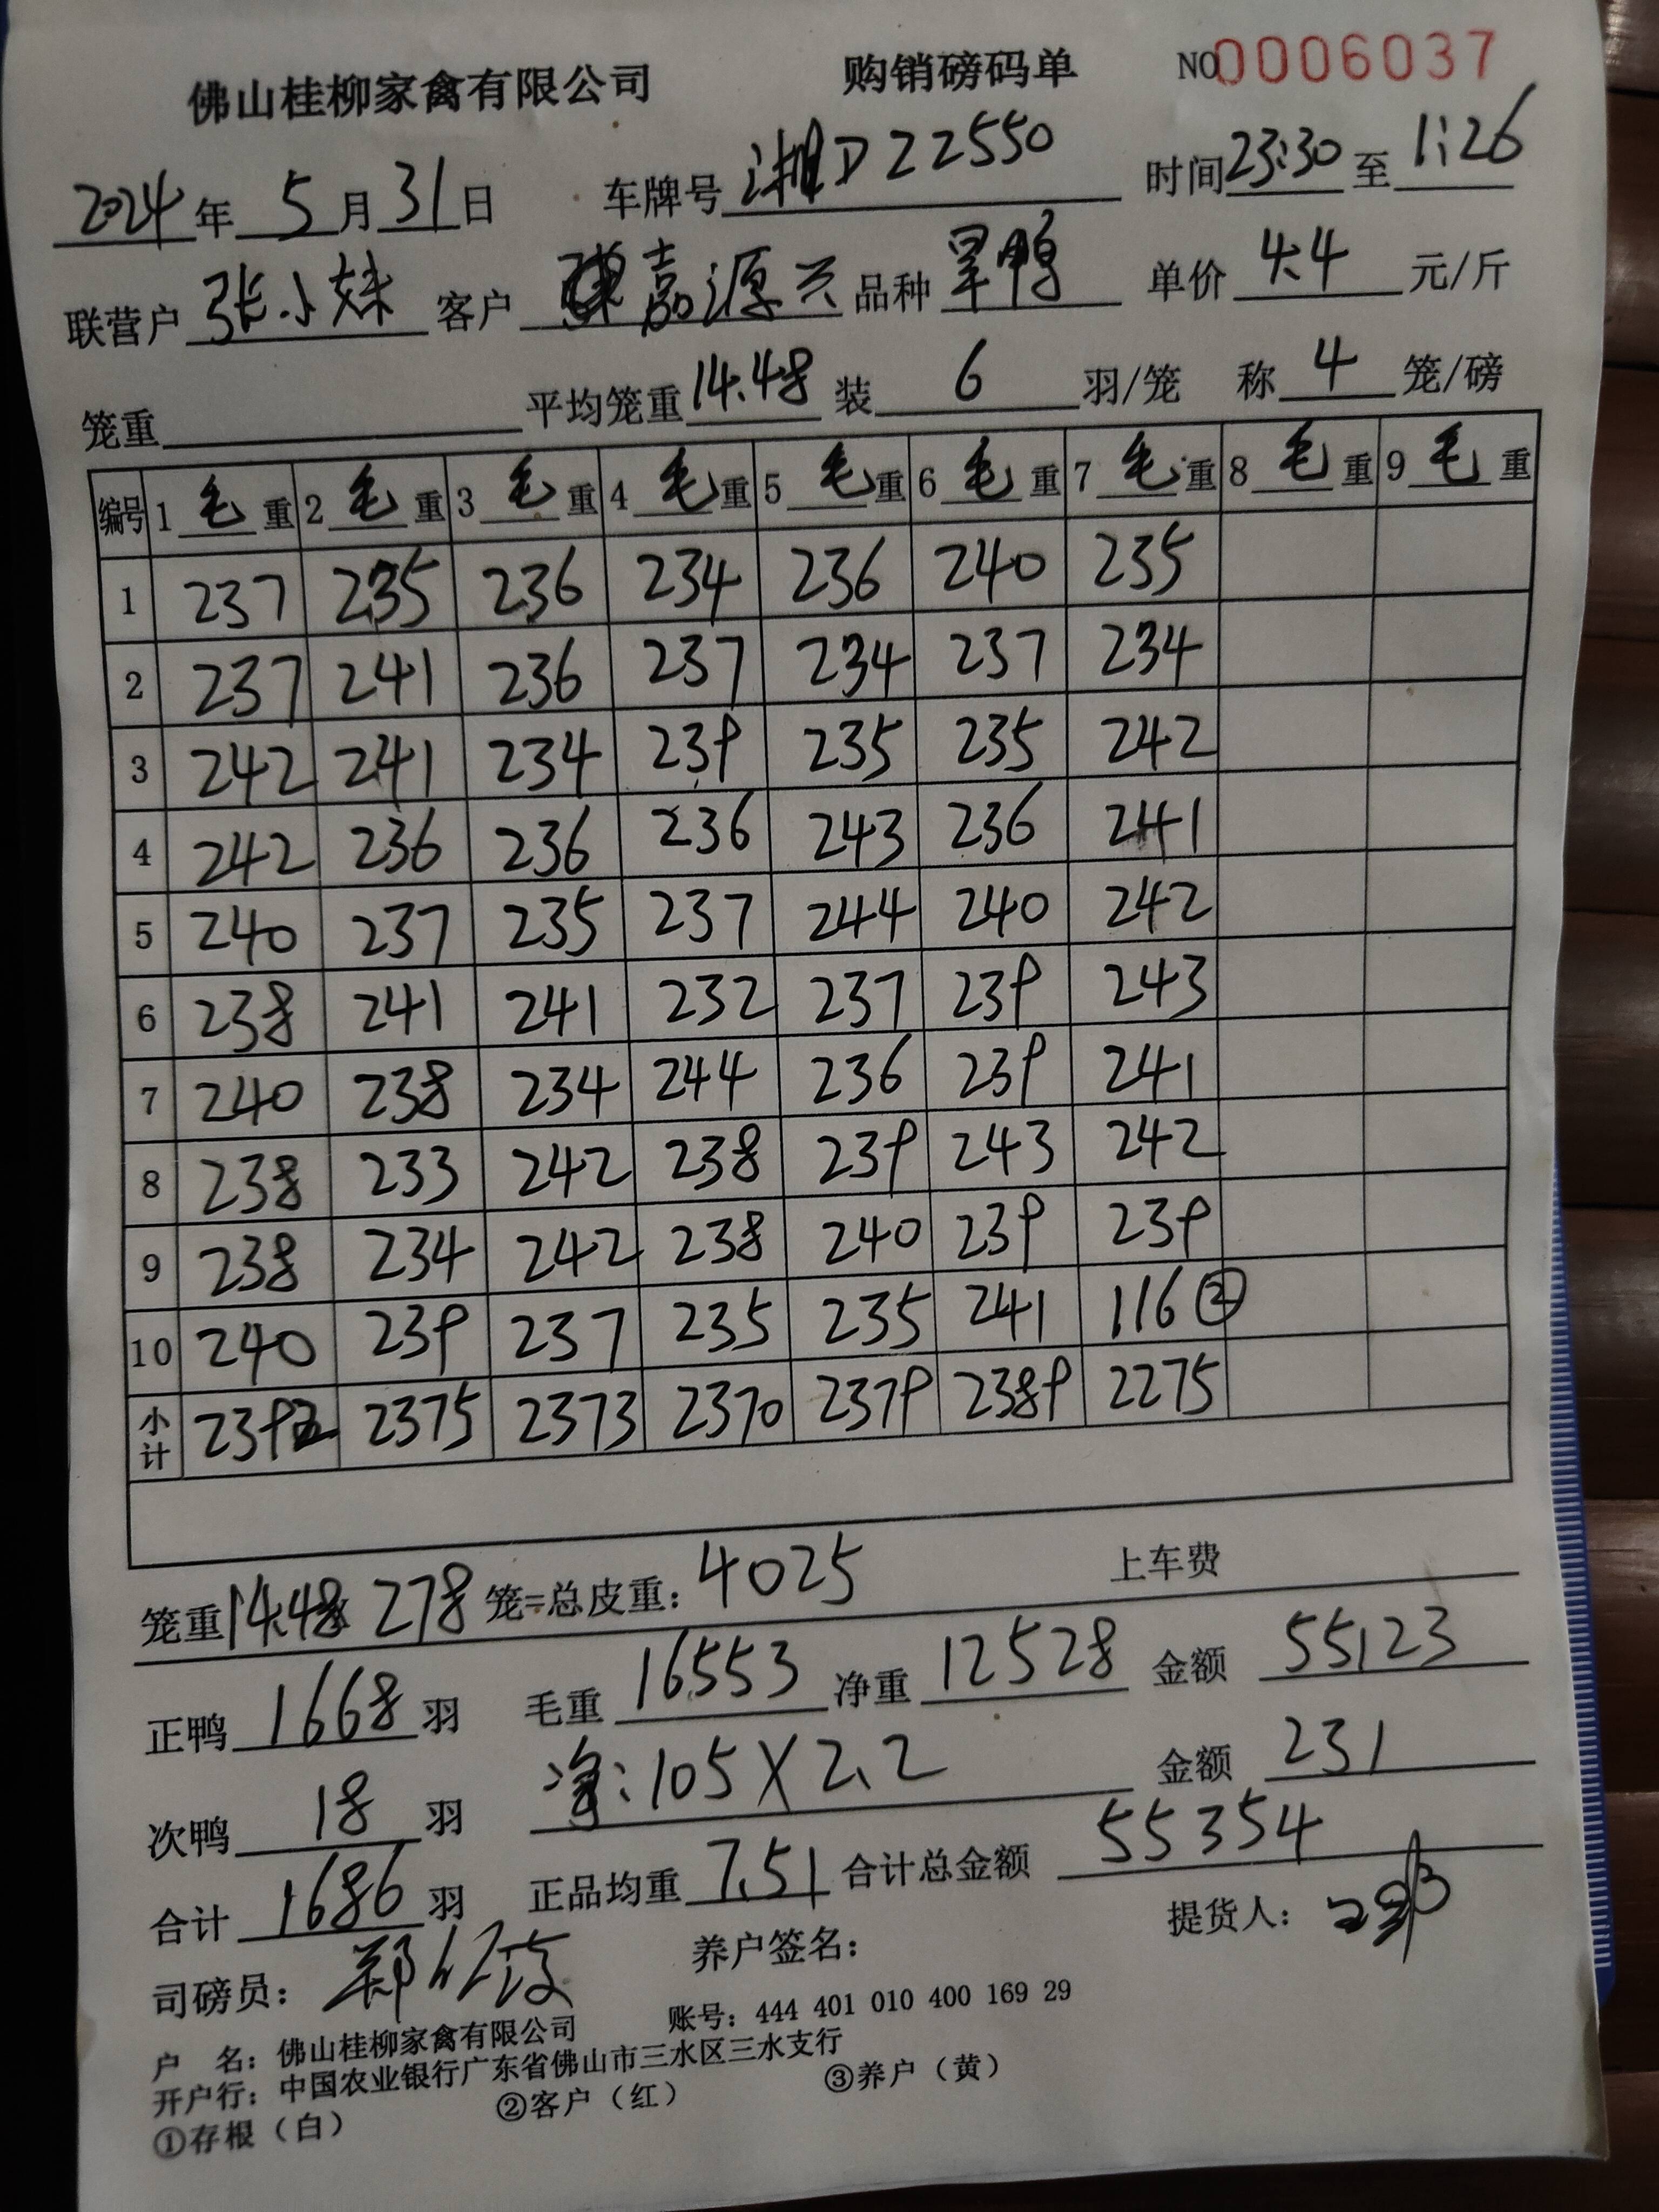 佛山桂柳家禽有限公司 购销磅码单 NO 0006037
2024年 5月31日 车牌号 湘D22550 时间23:30至1:26
联营户 张小妹 客户 嘉源兴 品种 旱鸭 单价 4.4 元/斤
笼重 平均笼重14.48 装 6 羽/笼 称 4 笼/磅
编号 1毛重 2毛重 3毛重 4毛重 5毛重 6毛重 7毛重 8毛重 9毛重
1 237 235 236 234 236 240 235
2 237 241 236 237 234 237 234
3 242 241 234 239 235 235 242
4 242 236 236 236 243 236 241
5 240 237 235 237 244 240 242
6 238 241 241 232 237 239 243
7 240 238 234 244 236 239 241
8 238 233 242 238 239 243 242
9 238 234 242 238 240 239 239
10 240 239 237 235 235 241 116②
小计 2392 2375 2373 2370 2379 2389 2275
笼重14.48× 278 笼=总皮重：4025 上车费
正鸭 1668 羽 毛重 16553 净重 12528 金额 55123
次鸭 18 羽 净:105×2.2 金额 231
合计 1686 羽 正品均重 7.51 合计总金额 55354
司磅员： 养户签名： 提货人：
户 名：佛山桂柳家禽有限公司 账号：444 401 010 400 169 29
开户行：中国农业银行广东省佛山市三水区三水支行
①存根（白） ②客户（红） ③养户（黄）